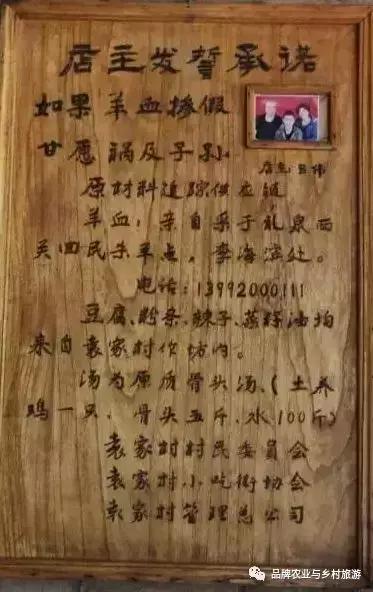 店主发誓承诺
如果羊血掺假
甘愿祸及子孙
店主:吕伟
原材料追踪供应链
羊血,亲自采于礼泉西
关回民牛羊点,李海滨处。
电话:13992000111
豆腐、粉条、辣子、菜籽油均
来自袁家村作坊内。
汤为原质骨头汤,(土养
鸡一只,骨头五斤,水100斤)
袁家村村民委员会
袁家村小吃街协会
袁家村管理总公司
品牌农业与乡村旅游